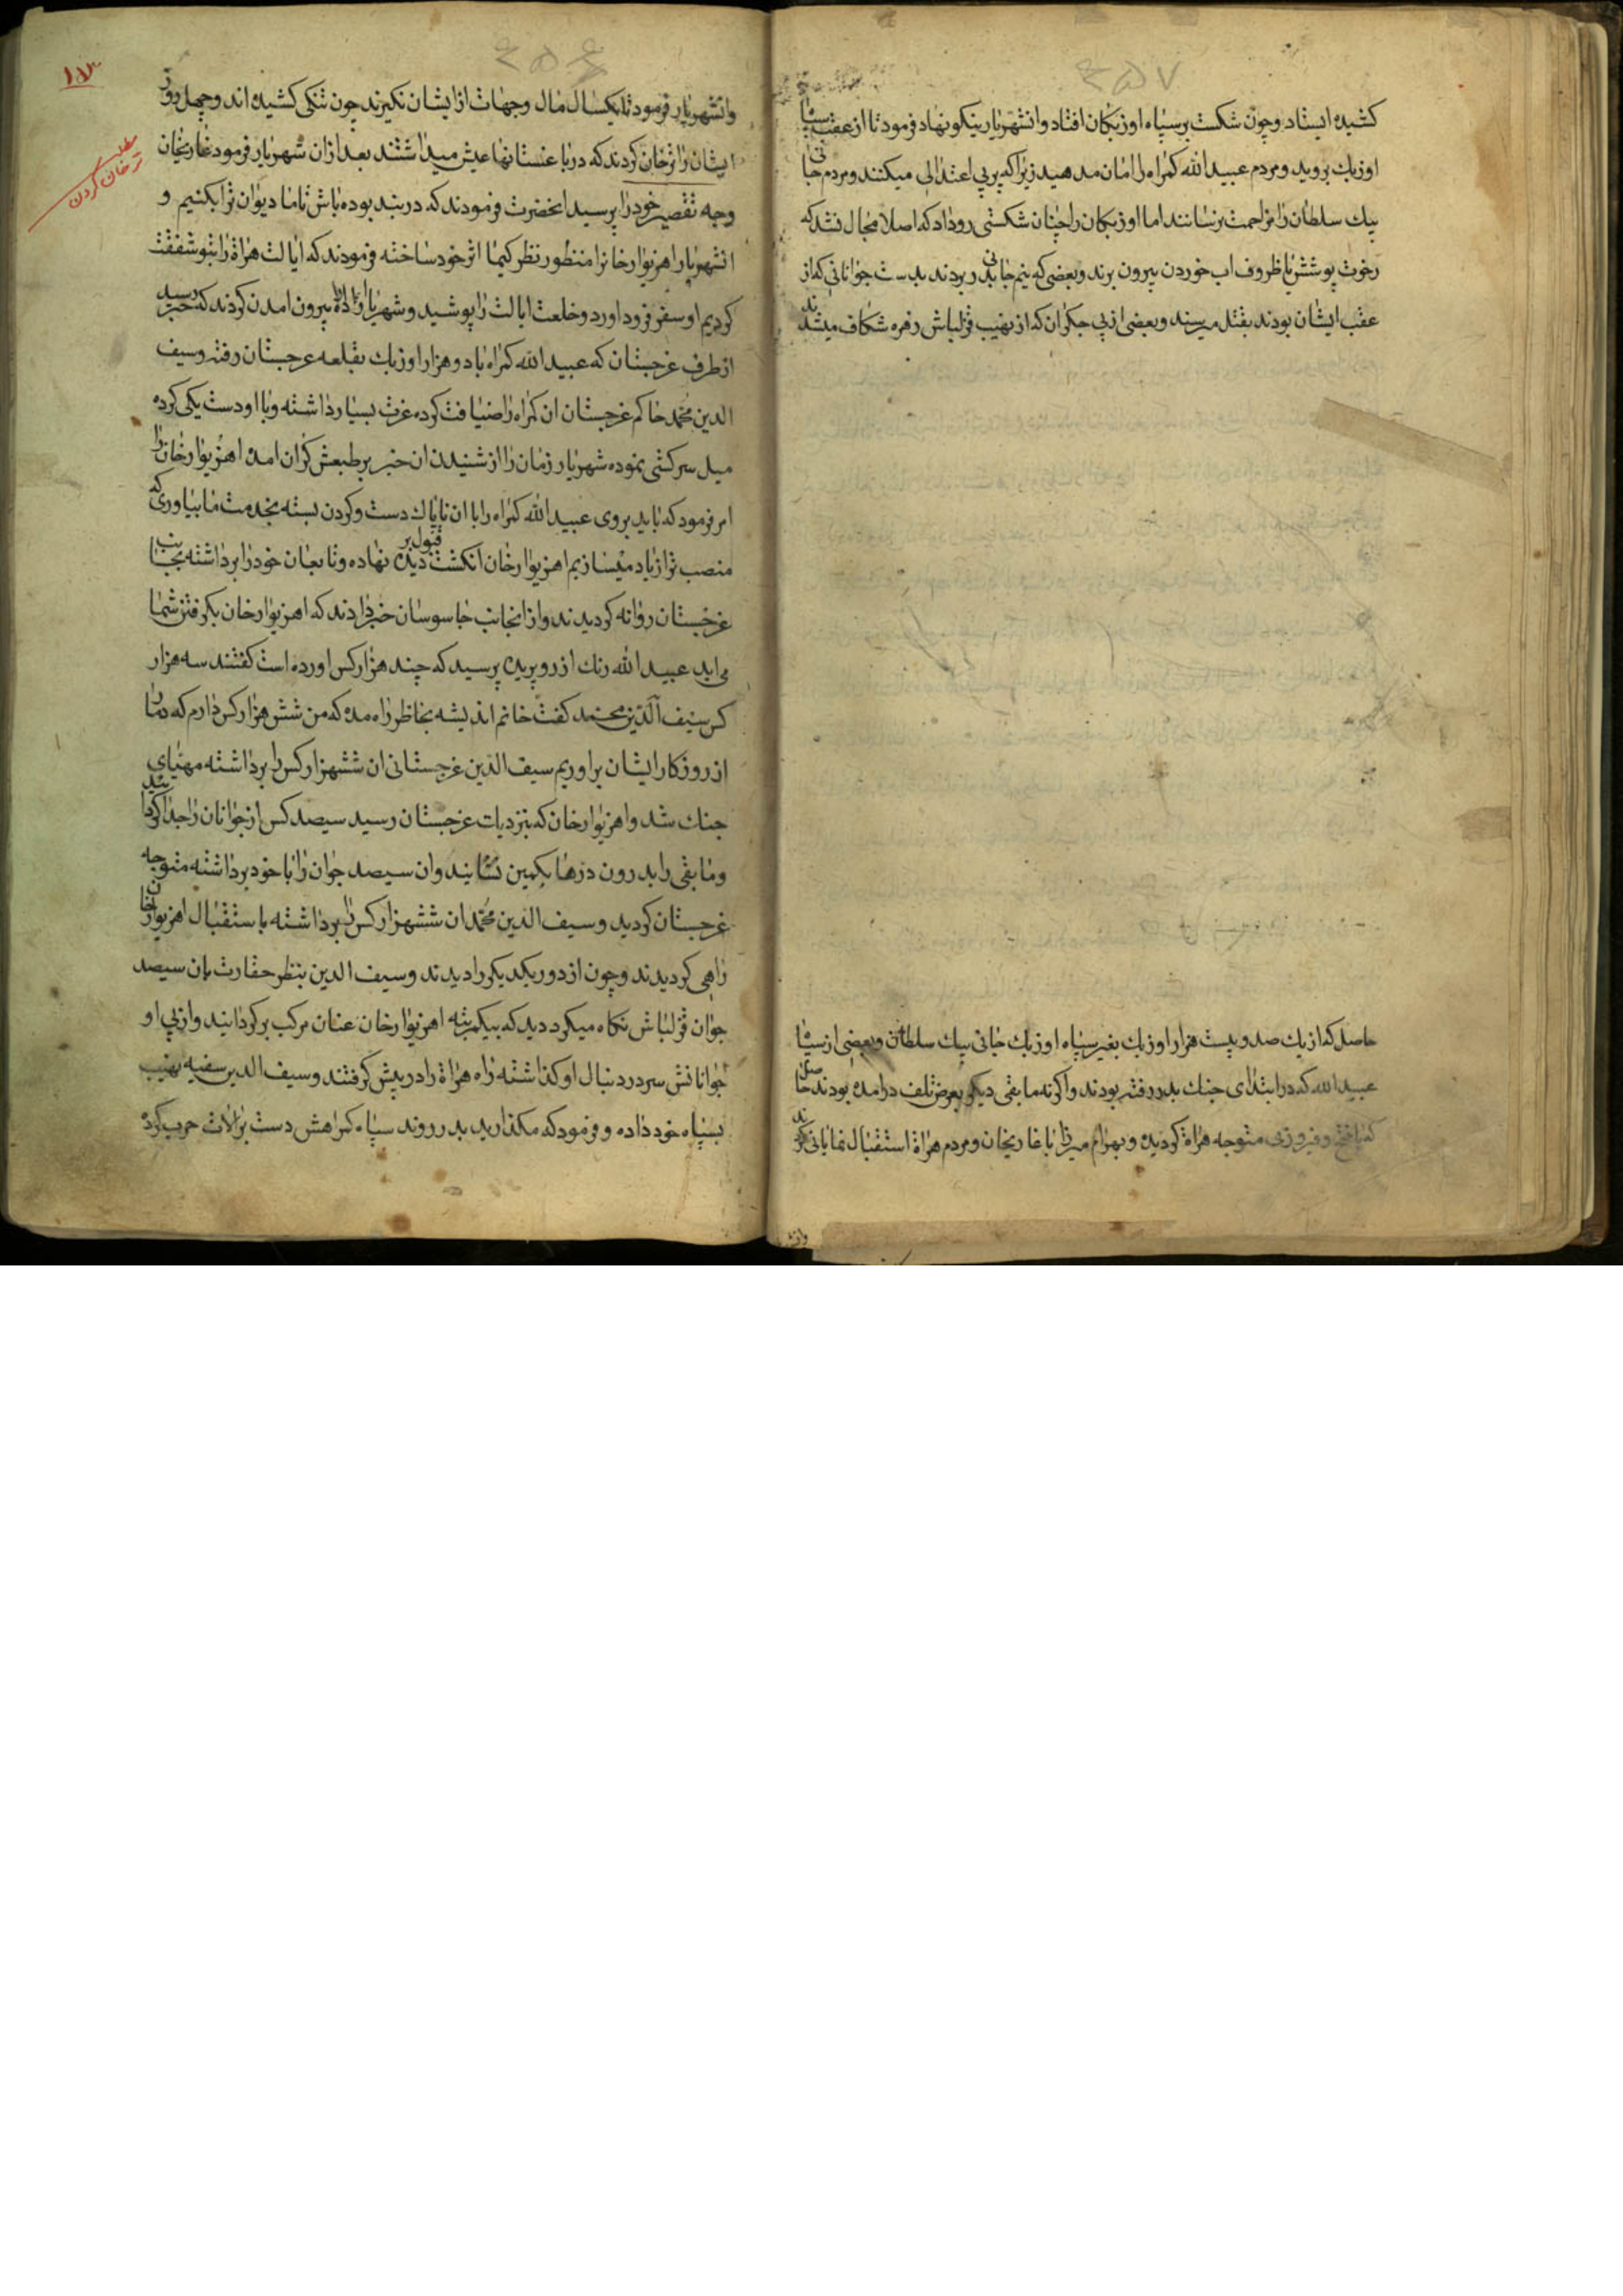 کشیده ایستاد و چون شکست بر سپاه اوزبکان افتاد و انشهریار نیکو نهاد فرمود تا از عقب سپاه
اوزبك بروید و مردم عبید الله کمراه را امان مدهید زیرا که پر بی اعتدالی میکنند و مردم جانی
بیك سلطان را مزاحمت نرسانند اما اوزبکان را چنان شکستی روداد که اصلا مجال نشد که
رخوت پوشش یا ظروف اب خوردن بیرون برند و بعضی که نیم جانی بدر بردند بدست جوانانی که از
عقب ایشان بودند بقتل میرسند و بعضی از بی جکران که از نهیب قزلباش زهره شکاف میشدند
حاصل که از یك صد و بیست هزار اوزبك بغیر سپاه اوزبك جانی بیك سلطان و بعضی از سپاه
عبید الله که در ابتدای جنك بدر رفته بودند و اکرنه مابقی دیکر بمعرض تلف درامده بودند حاصل
که با فتح و فیروزی متوجه هراة کردیده و بهرام میرزا با غازیخان و مردم هراة استقبال نمایانی کردند
۲۵۷
۲۵۶
وانشهریار فرمود تا یکسال مال و جهات از ایشان نکیرند چون تنکی کشیده اند و چهل روز
ایشان را ترخان کردند که در باغستانها عیش میداشتند بعد ازان شهریار فرمود غازیخان
وجه تقصیر خود را پرسید انحضرت فرمودند که در بند بوده باش تا ما دیوان ترا بکنیم و
انشهریار اهز یوار خانرا منظور نظر کیمیا اثر خود ساخته فرمودند که ایالت هراة را بتو شفقت
کردیم او سفر فرود اورد و خلعت ایالت را پوشید و شهریار اراده بیرون امدن کردند که خبر رسید
از طرف غرجستان که عبید الله کمراه با دو هزار اوزبك بقلعه غرجستان رفته و سیف
الدین محمد حاکم غرجستان ان کمراه را ضیافت کرده عزت بسیار داشته و با او دست یکی کرده
میل سرکشی نموده شهریار زمان را از شنیدن ان خبر بر طبعش کران امده اهز یوار خان را
امر فرمود که باید بروی عبید الله کمراه را با ان ناپاك دست و کردن بسته بخدمت ما بیاوری که
منصب ترا زیاد میسازیم اهز یوار خان انکشت قبول بر دیده نهاده و تابعان خود را برداشته بجانب
غرجستان روانه کردیدند و از انجانب جاسوسان خبر دادند که اهز یوار خان بکرفتن شما
می اید عبید الله رنك از رو پریده پرسید که چند هزار کس اورده است کفتند سه هزار
کس سیف الدین محمد کفت خانم اندیشه بخاطر راه مده که من شش هزار کس دارم که دمار
از روزکار ایشان براوریم سیف الدین غرجستانی ان ششهزار کس را برداشته مهیای
جنك شد و اهز یوار خان که بنزدیك غرجستان رسید سیصد کس از جوانان را جدا کردانید
و مابقی را بدرون درها بکمین نشانید و ان سیصد جوان را با خود برداشته متوجه
غرجستان کردید و سیف الدین محمد ان ششهزار کس را برداشته باستقبال اهز یوار خان
راهی کردیدند و چون از دور یکدیکر را دیدند و سیف الدین بنظر حقارت بان سیصد
جوان قزلباش نکاه میکرد دید که بیکمرتبه اهز یوار خان عنان مرکب برکردانید و از پی او
جوانانش سر در دنبال او کذاشته راه هراة را در پیش کرفتند و سیف الدین سفیه نهیب
بسپاه خود داده و فرمود که مکذارید بدر روند سپاه کمراهش دست بر الات حرب کرده
ترخان کردن